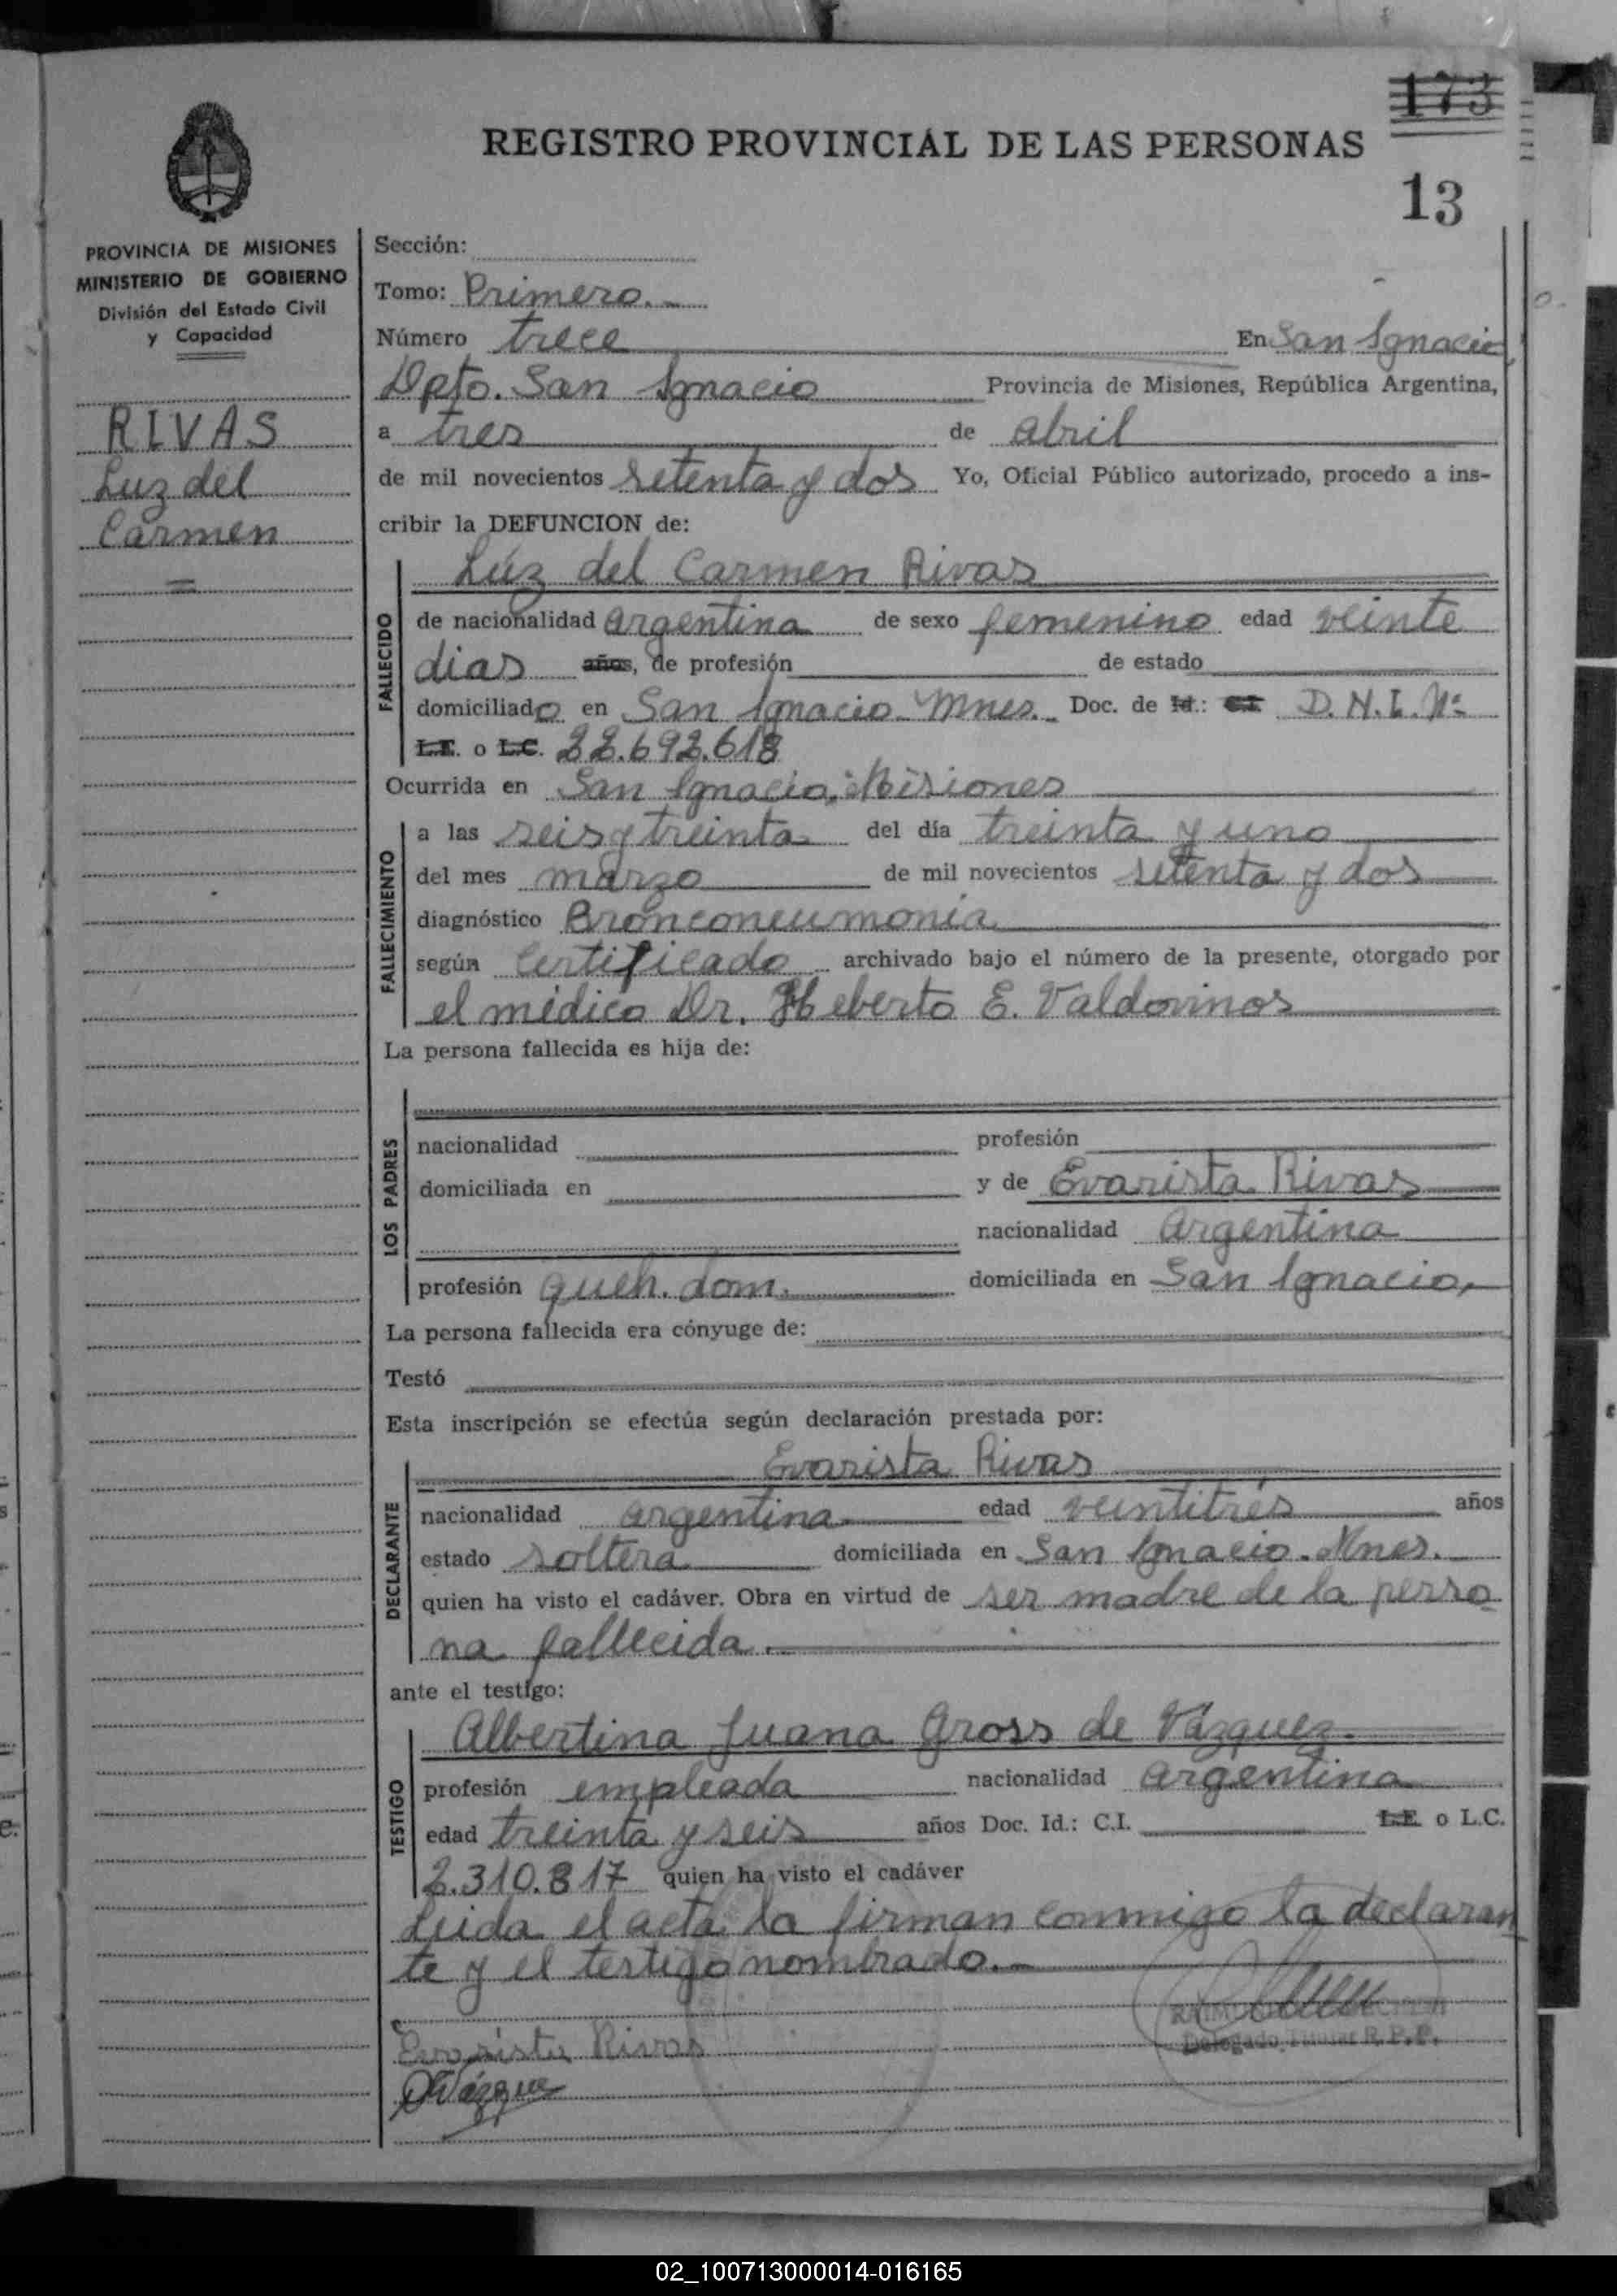 173
REGISTRO PROVINCIAL DE LAS PERSONAS
13
PROVINCIA DE MISIONES
MINISTERIO DE GOBIERNO
División del Estado Civil
y Capacidad
RIVAS
Luz del
Carmen
Sección:
Tomo: Primero.
Número trece En San Ignacio
Dpto. San Ignacio Provincia de Misiones, República Argentina,
a tres de abril
de mil novecientos setenta y dos Yo, Oficial Público autorizado, procedo a ins-
cribir la DEFUNCION de:
FALLECIDO
Lúz del Carmen Rivas
de nacionalidad argentina de sexo femenino edad veinte
dias años, de profesión de estado
domiciliado en San Ignacio Mnes. Doc. de Id.: C.I. D.N.I. Nº
L.E. o L.C. 22.692.618
Ocurrida en San Ignacio, Misiones
FALLECIMIENTO
a las seis y treinta del día treinta y uno
del mes marzo de mil novecientos setenta y dos
diagnóstico Bronconeumonia
según Certificado archivado bajo el número de la presente, otorgado por
el médico Dr. Heberto E. Valdovinos
La persona fallecida es hija de:
LOS PADRES
nacionalidad profesión
domiciliada en y de Evarista Rivas
nacionalidad argentina
profesión queh. dom. domiciliada en San Ignacio,
La persona fallecida era cónyuge de:
Testó
Esta inscripción se efectúa según declaración prestada por:
DECLARANTE
Evarista Rivas
nacionalidad argentina edad veintitrés años
estado soltera domiciliada en San Ignacio. Mnes.
quien ha visto el cadáver. Obra en virtud de ser madre de la perso
na fallecida.
ante el testigo:
TESTIGO
Albertina Juana Gross de Vázquez.
profesión empleada nacionalidad argentina
edad treinta y seis años Doc. Id.: C.I. L.E. o L.C.
2.310.817 quien ha visto el cadáver
Leida el acta la firman conmigo la declaran
te y el testigo nombrado.
Delegado Titular R.P.P.
Evarista Rivas
Vázquez
02_100713000014-016165